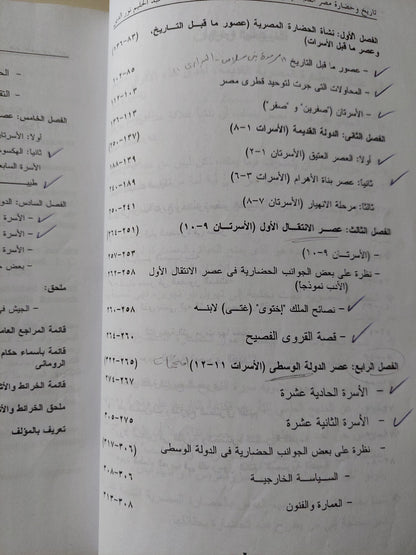 تاريخ وحضارة مصر
الفصل الأول: نشأة الحضارة المصرية (عصور ما قبل التاريخ،
وعصر ما قبل الأسرات) (٨٣-١٣٦)
- عصور ما قبل التاريخ ٨٥-١٠٢
- المحاولات التي جرت لتوحيد قطرى مصر ١٠٣-١١٢
- الأسرتان (صفرين" و "صفر") ١١٣-١٣٦
الفصل الثانى: الدولة القديمة (الأسرات ١-٨) (١٣٧-٢٥٠)
أولا: العصر العتيق (الأسرتان ١-٢) ١٣٩-١٨٨
ثانيا: عصر بناة الأهرام (الأسرات ٣-٦) ١٨٩-٢٤٠
ثالثا: مرحلة الانهيار (الأسرتان ٧-٨) ٢٤١-٢٥٠
الفصل الثالث: عصر الانتقال الأول (الأسرتان ٩-١٠) (٢٥١-٢٦٤)
- (الأسرتان ٩-١٠) ٢٥٣-٢٥٧
- نظرة على بعض الجوانب الحضارية فى عصر الانتقال الأول ٢٥٨-٢٦٢
(الأدب نموذجا)
- نصائح الملك "إختوى" (غتى) لابنه
- قصة القروى الفصيح ٢٦٠-٢٦٤
الفصل الرابع: عصر الدولة الوسطى (الأسرات ١١-١٢) (٢٦٥-٣٢٢)
- الأسرة الحادية عشرة ٢٦٧-٢٧٤
- الأسرة الثانية عشرة ٢٧٥-٣٠٥
- نظرة على بعض الجوانب الحضارية فى الدولة الوسطى (٣٠٦-٣١٧)
- السياسة الخارجية ٣٠٦-٣٠٨
- العمارة والفنون ٣٠٨-٣١٣
الفصل الخامس: عصر
أولا: الأسرتان
ثانيا: الهكسوس
الأسرة السابعة
الفصل السادس: الدول
- الأسرة
- الأسرة
- الأسرة
- بعض
ملحق:
- الجيش فى
قائمة المراجع العامة
قائمة بأسماء حكام
الرومانى
قائمة الخرائط والأ
ملحق الخرائط والأ
تعريف بالمؤلف